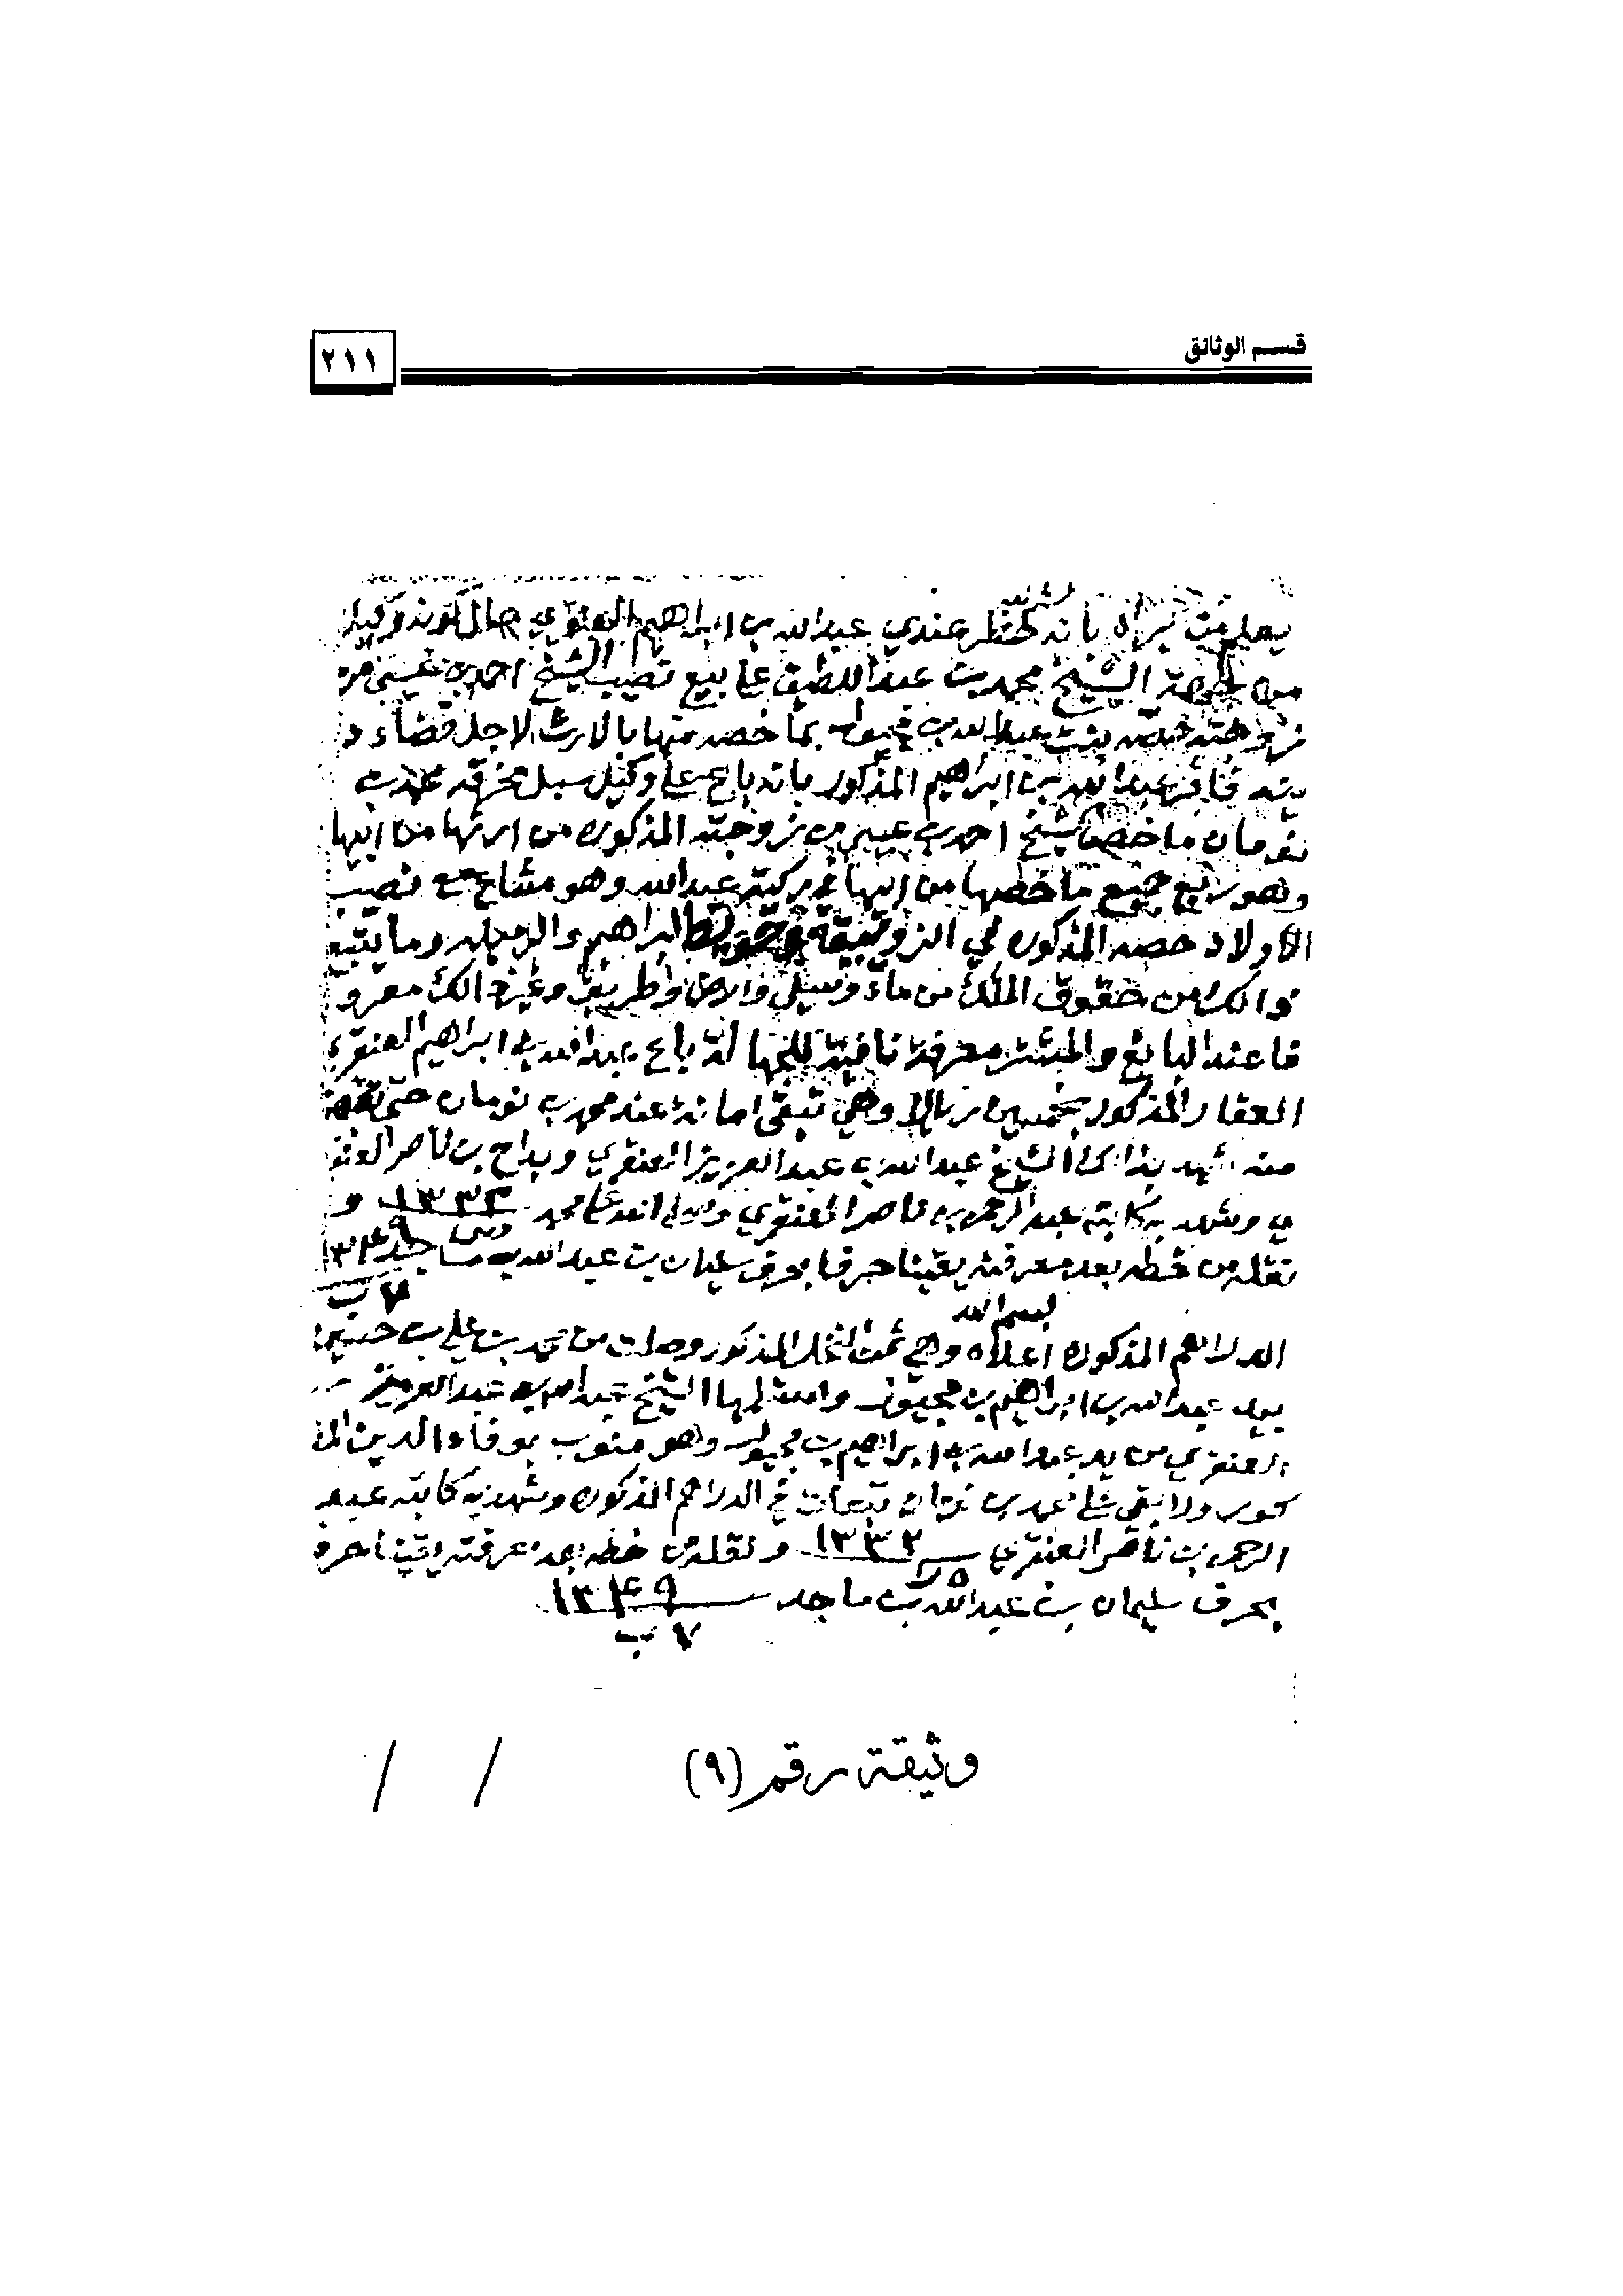 قسم الوثائق
٢١١
يعلم من يراه بانه حضر عندي عبدالله بن ابراهيم العنقري حال كونه وكيلا
من جهة الشيخ محمد بن عبداللطيف على بيع نصيب الشيخ احمد بن عيسى من
زوجته بنت عبدالله بن بما خصه منها بالارث لاجل قضاء د
ينه فاقر عبدالله بن ابراهيم المذكور بانه باع على وكيل سبل محمد بن
نومان ما خص الشيخ احمد بن عيسى من زوجته المذكوره من ارثها من ابيها
وهو ربع جميع ما خصها من ابيها في ركية عبدالله وهو مشاع مع نصيب
الاولاد حصه المذكوره في ابراهيم و وما يتبع
ذالك من حقوق الملك من ماء وسيل وارض وطريق وغير ذالك معرو
فا عند البائع والمشتر معرفة نافية للجهالة باع عبدالله بن ابراهيم العنقري
العقار المذكور بخمسين ريالا وهي تبقى امانة عند محمد بن نومان حتى
منه شهد بذالك الشيخ عبدالله بن عبدالعزيز العنقري وبداح بن ناصر العنقر
ي وشهد به كاتبه عبدالرحمن بن ناصر العنقري وصلى الله على محمد ١٣٣٢ و
نقله من خطه بعد معرفته يقينا حرفا بحرف سليمان بن عبدالله بن ماجد ١٣٤٩
٧ ب
بسم الله
الدراهم المذكوره اعلاه وهي ثمن النخل المذكور وصلت من محمد بن علي بن حسين
بيد عبدالله بن ابراهيم بن واستلمها الشيخ عبدالله بن عبدالعزيز
العنقري من يد عبدالله بن ابراهيم بن وهو منوب بوفاء الدين المذ
كور ولا بقى على محمد بن نومان تبعات في الدراهم المذكوره وشهد به كاتبه عبد
الرحمن بن ناصر العنقري ١٣٣٢ ونقله من خطه بعد معرفته يقينا حرف
بحرف سليمان بن عبدالله بن ماجد ١٣٤٩
٧ ب
وثيقة رقم (٩) / /